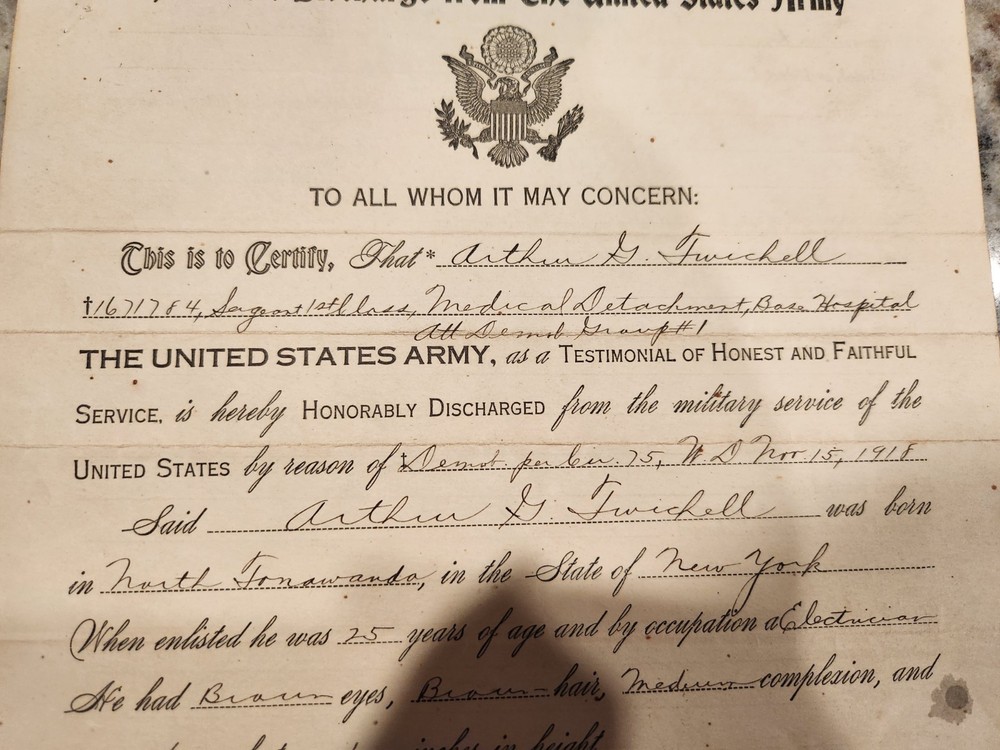 Discharge from The United States Army
TO ALL WHOM IT MAY CONCERN:
This is to Certify, That* Arthur G. Twichell
†1671784, Sargeant 1st Class, Medical Detachment, Base Hospital
Att Demob Group #1
THE UNITED STATES ARMY, as a TESTIMONIAL OF HONEST AND FAITHFUL
SERVICE, is hereby HONORABLY DISCHARGED from the military service of the
UNITED STATES by reason of ‡Demob per Cir. 75, W D Nov 15, 1918
Said Arthur G. Twichell was born
in North Tonawanda, in the State of New York
When enlisted he was 25 years of age and by occupation a Electrician
He had Brown eyes, Brown hair, Medium complexion, and
inches in height